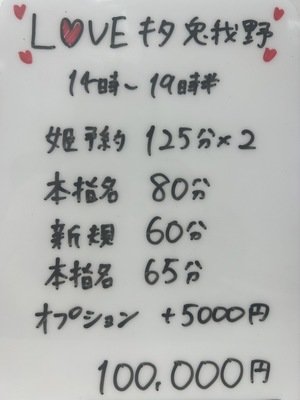 LOVE キタ兎我野
14時〜19時半
姫予約 125分×2
本指名 80分
新規 60分
本指名 65分
オプション +5000円
100,000円